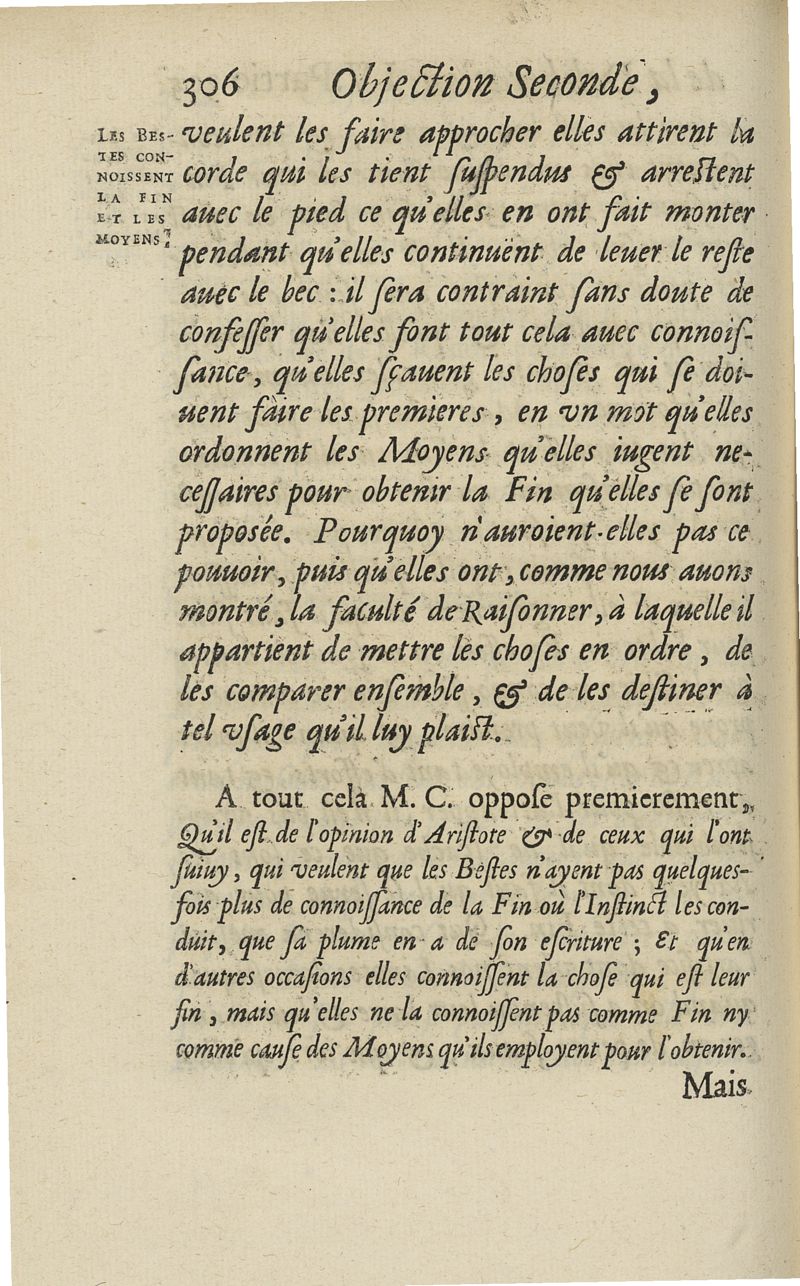 306 Objection Seconde,
LES BES-
TES CON-
NOISSENT
LA FIN
ET LES
MOYENS.
veulent les faire approcher elles attirent la
corde qui les tient ſuſpendus & arreſtent
auec le pied ce qu'elles en ont fait monter
pendant qu'elles continuënt de leuer le reſte
auec le bec : il ſera contraint ſans doute de
confeſſer qu'elles font tout cela auec connoiſ-
ſance, qu'elles ſçauent les choſes qui ſe doi-
uent faire les premieres, en vn mot qu'elles
ordonnent les Moyens qu'elles iugent ne-
ceſſaires pour obtenir la Fin qu'elles ſe ſont
proposée. Pourquoy n'auroient-elles pas ce
pouuoir, puis qu'elles ont, comme nous auons
montré, la faculté de Raiſonner, à laquelle il
appartient de mettre les choſes en ordre, de
les comparer enſemble, & de les deſtiner à
tel vſage qu'il luy plaiſt.
A tout cela M. C. oppoſe premierement,
Qu'il eſt de l'opinion d'Ariſtote & de ceux qui l'ont
ſuiuy, qui veulent que les Beſtes n'ayent pas quelques-
fois plus de connoiſſance de la Fin où l'Inſtinct les con-
duit, que ſa plume en a de ſon eſcriture ; Et qu'en
d'autres occaſions elles connoiſſent la choſe qui eſt leur
fin, mais qu'elles ne la connoiſſent pas comme Fin ny
comme cauſe des Moyens qu'ils employent pour l'obtenir.
Mais